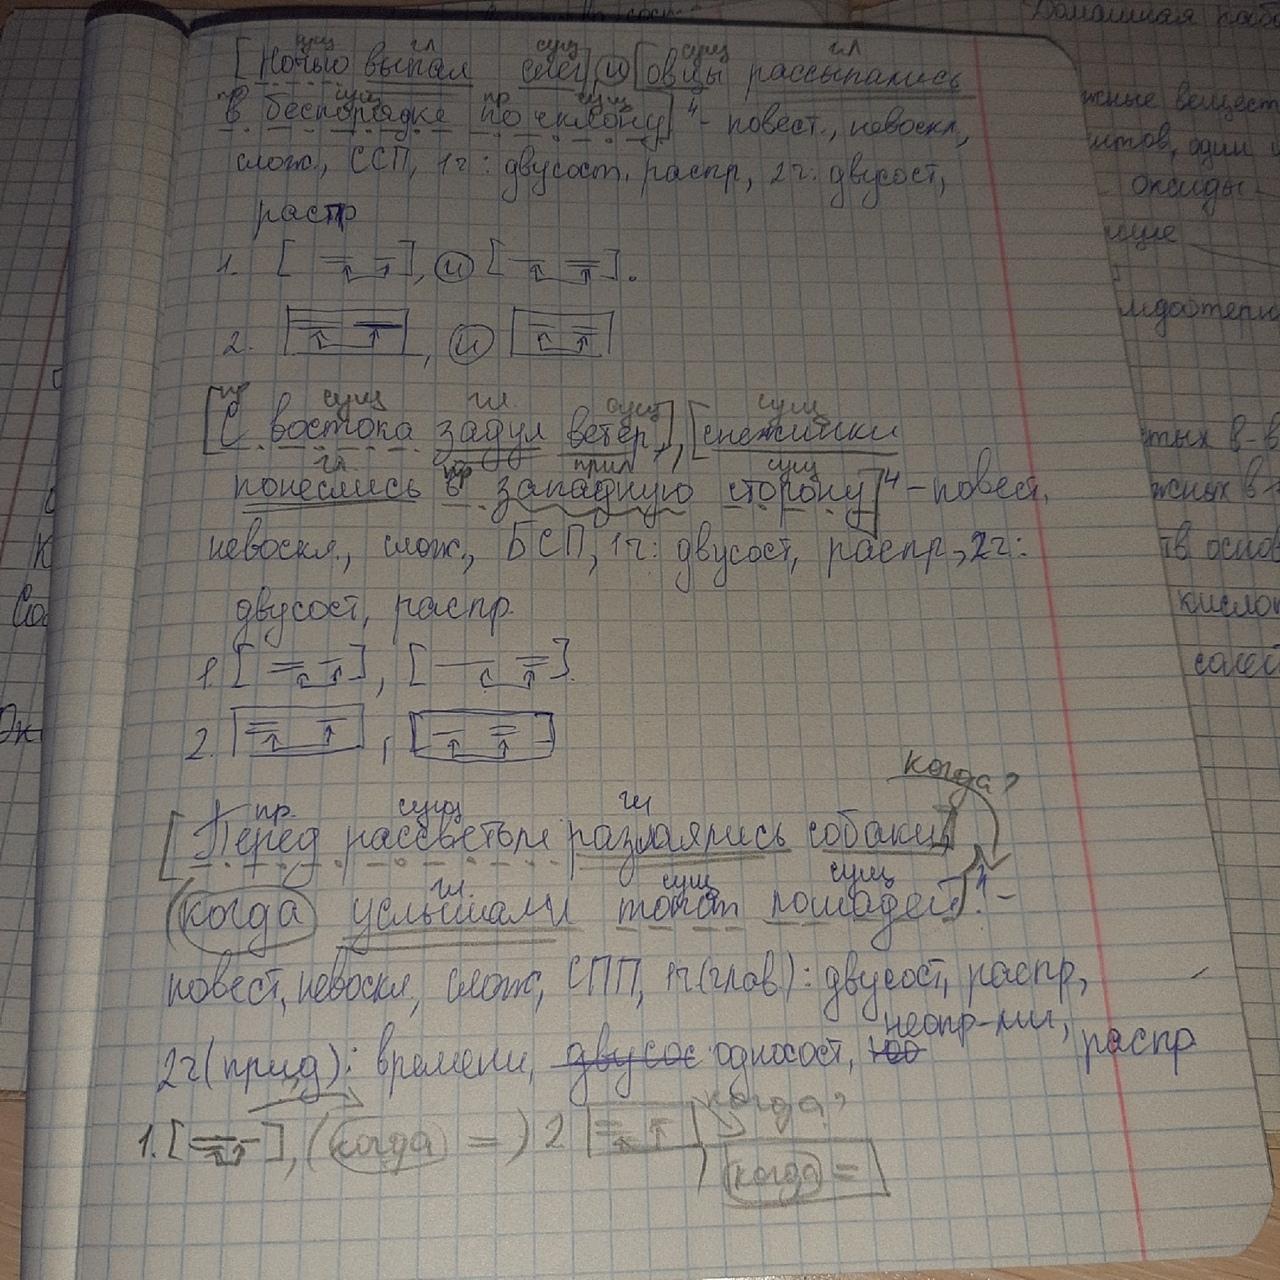 сущ гл сущ сущ гл
[Ночью выпал снег] и [овцы рассыпались
пр сущ пр сущ
в беспорядке по склону]⁴ - повест., невоскл,
слож., ССП, 1ч: двусост. распр, 2ч: двусост,
распр
1. [ ], и [ ].
2. , и
пр сущ гл. сущ сущ
[С востока задул ветер], [снежинки
гл пр прил сущ
понеслись в западную сторону]⁴ - повест,
невоскл., слож., БСП, 1ч: двусост, распр, 2ч:
двусост, распр.
1. [ ], [ ].
2. ,
когда?
пр. сущ гл
[Перед рассветом разлаялись собаки],
гл. сущ сущ
(когда услышали топот лошадей).⁴ -
повест, невоскл, слож, СПП, 1ч(глав): двусост, распр,
2ч(прид): времени, двусос односост, неопр-ли, распр
когда?
1. [ ], (когда = ) 2. ,
когда =
Домашняя
оксиды
кислот
солей